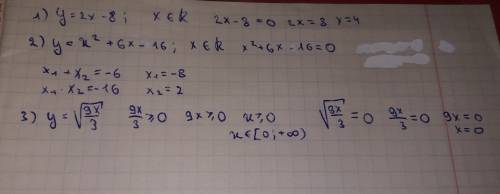 1) y=2x-8; x∈R 2x-8=0 2x=8 x=4
2) y=x²+6x-16; x∈R x²+6x-16=0
x₁+x₂=-6 x₁=-8
x₁·x₂=-16 x₂=2
3) y=√(9x/3) 9x/3≥0 9x≥0 x≥0 √(9x/3)=0 9x/3=0 9x=0
x∈[0;+∞) x=0